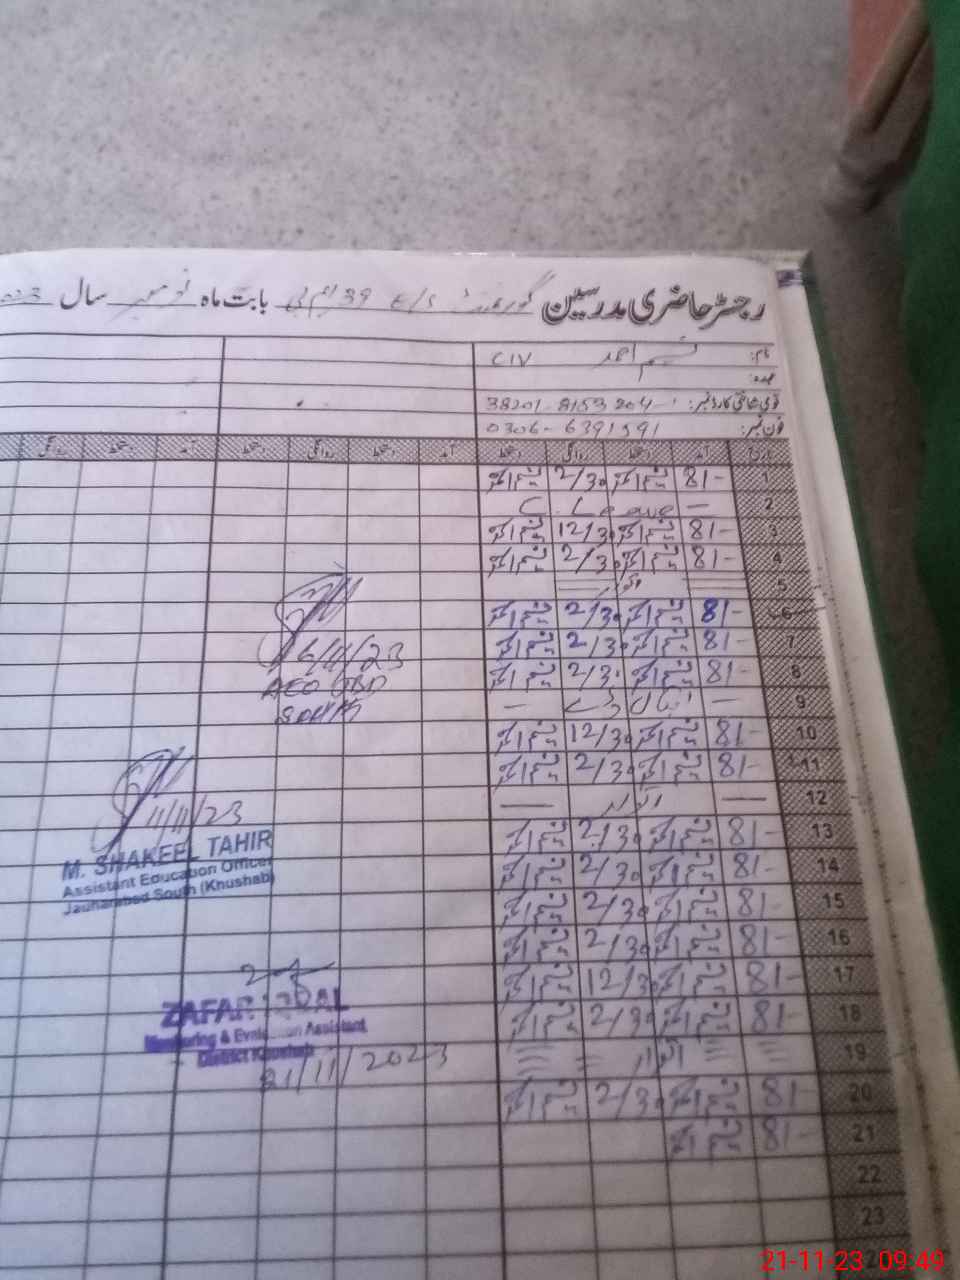 رجسٹر حاضری مدرسین گورنمنٹ E/S 39 ایم بی بابت ماہ نومبر سال
نام: نسیم احمد CIV
عہدہ:
قومی شناختی کارڈ نمبر: 38201-8153204-1
فون نمبر: 0306-6391591
تاریخ آمد دستخط روانگی دستخط آمد دستخط روانگی دستخط آمد دستخط روانگی
1 8/- نسیم احمد 2/30 نسیم احمد
2 — C. Leave
3 8/- نسیم احمد 12/30 نسیم احمد
4 8/- نسیم احمد 2/30 نسیم احمد
5 اتوار
6 8/- نسیم احمد 2/30 نسیم احمد
7 8/- نسیم احمد 2/30 نسیم احمد
8 8/- نسیم احمد 2/30 نسیم احمد
9 — اقبال ڈے —
10 8/- نسیم احمد 12/30 نسیم احمد
11 8/- نسیم احمد 2/30 نسیم احمد
12 — اتوار —
13 8/- نسیم احمد 2/30 نسیم احمد
14 8/- نسیم احمد 2/30 نسیم احمد
15 8/- نسیم احمد 2/30 نسیم احمد
16 8/- نسیم احمد 2/30 نسیم احمد
17 8/- نسیم احمد 12/30 نسیم احمد
18 8/- نسیم احمد 2/30 نسیم احمد
19 اتوار
20 8/- نسیم احمد 2/30 نسیم احمد
21 8/- نسیم احمد
22
23
6/11/23
AEO JBD
South
11/11/23
M. SHAKEEL TAHIR
Assistant Education Officer
Jauharabad South (Khushab)
ZAFAR IQBAL
Monitoring & Evaluation Assistant
District Khushab
21/11/2023
21-11-23 09:49